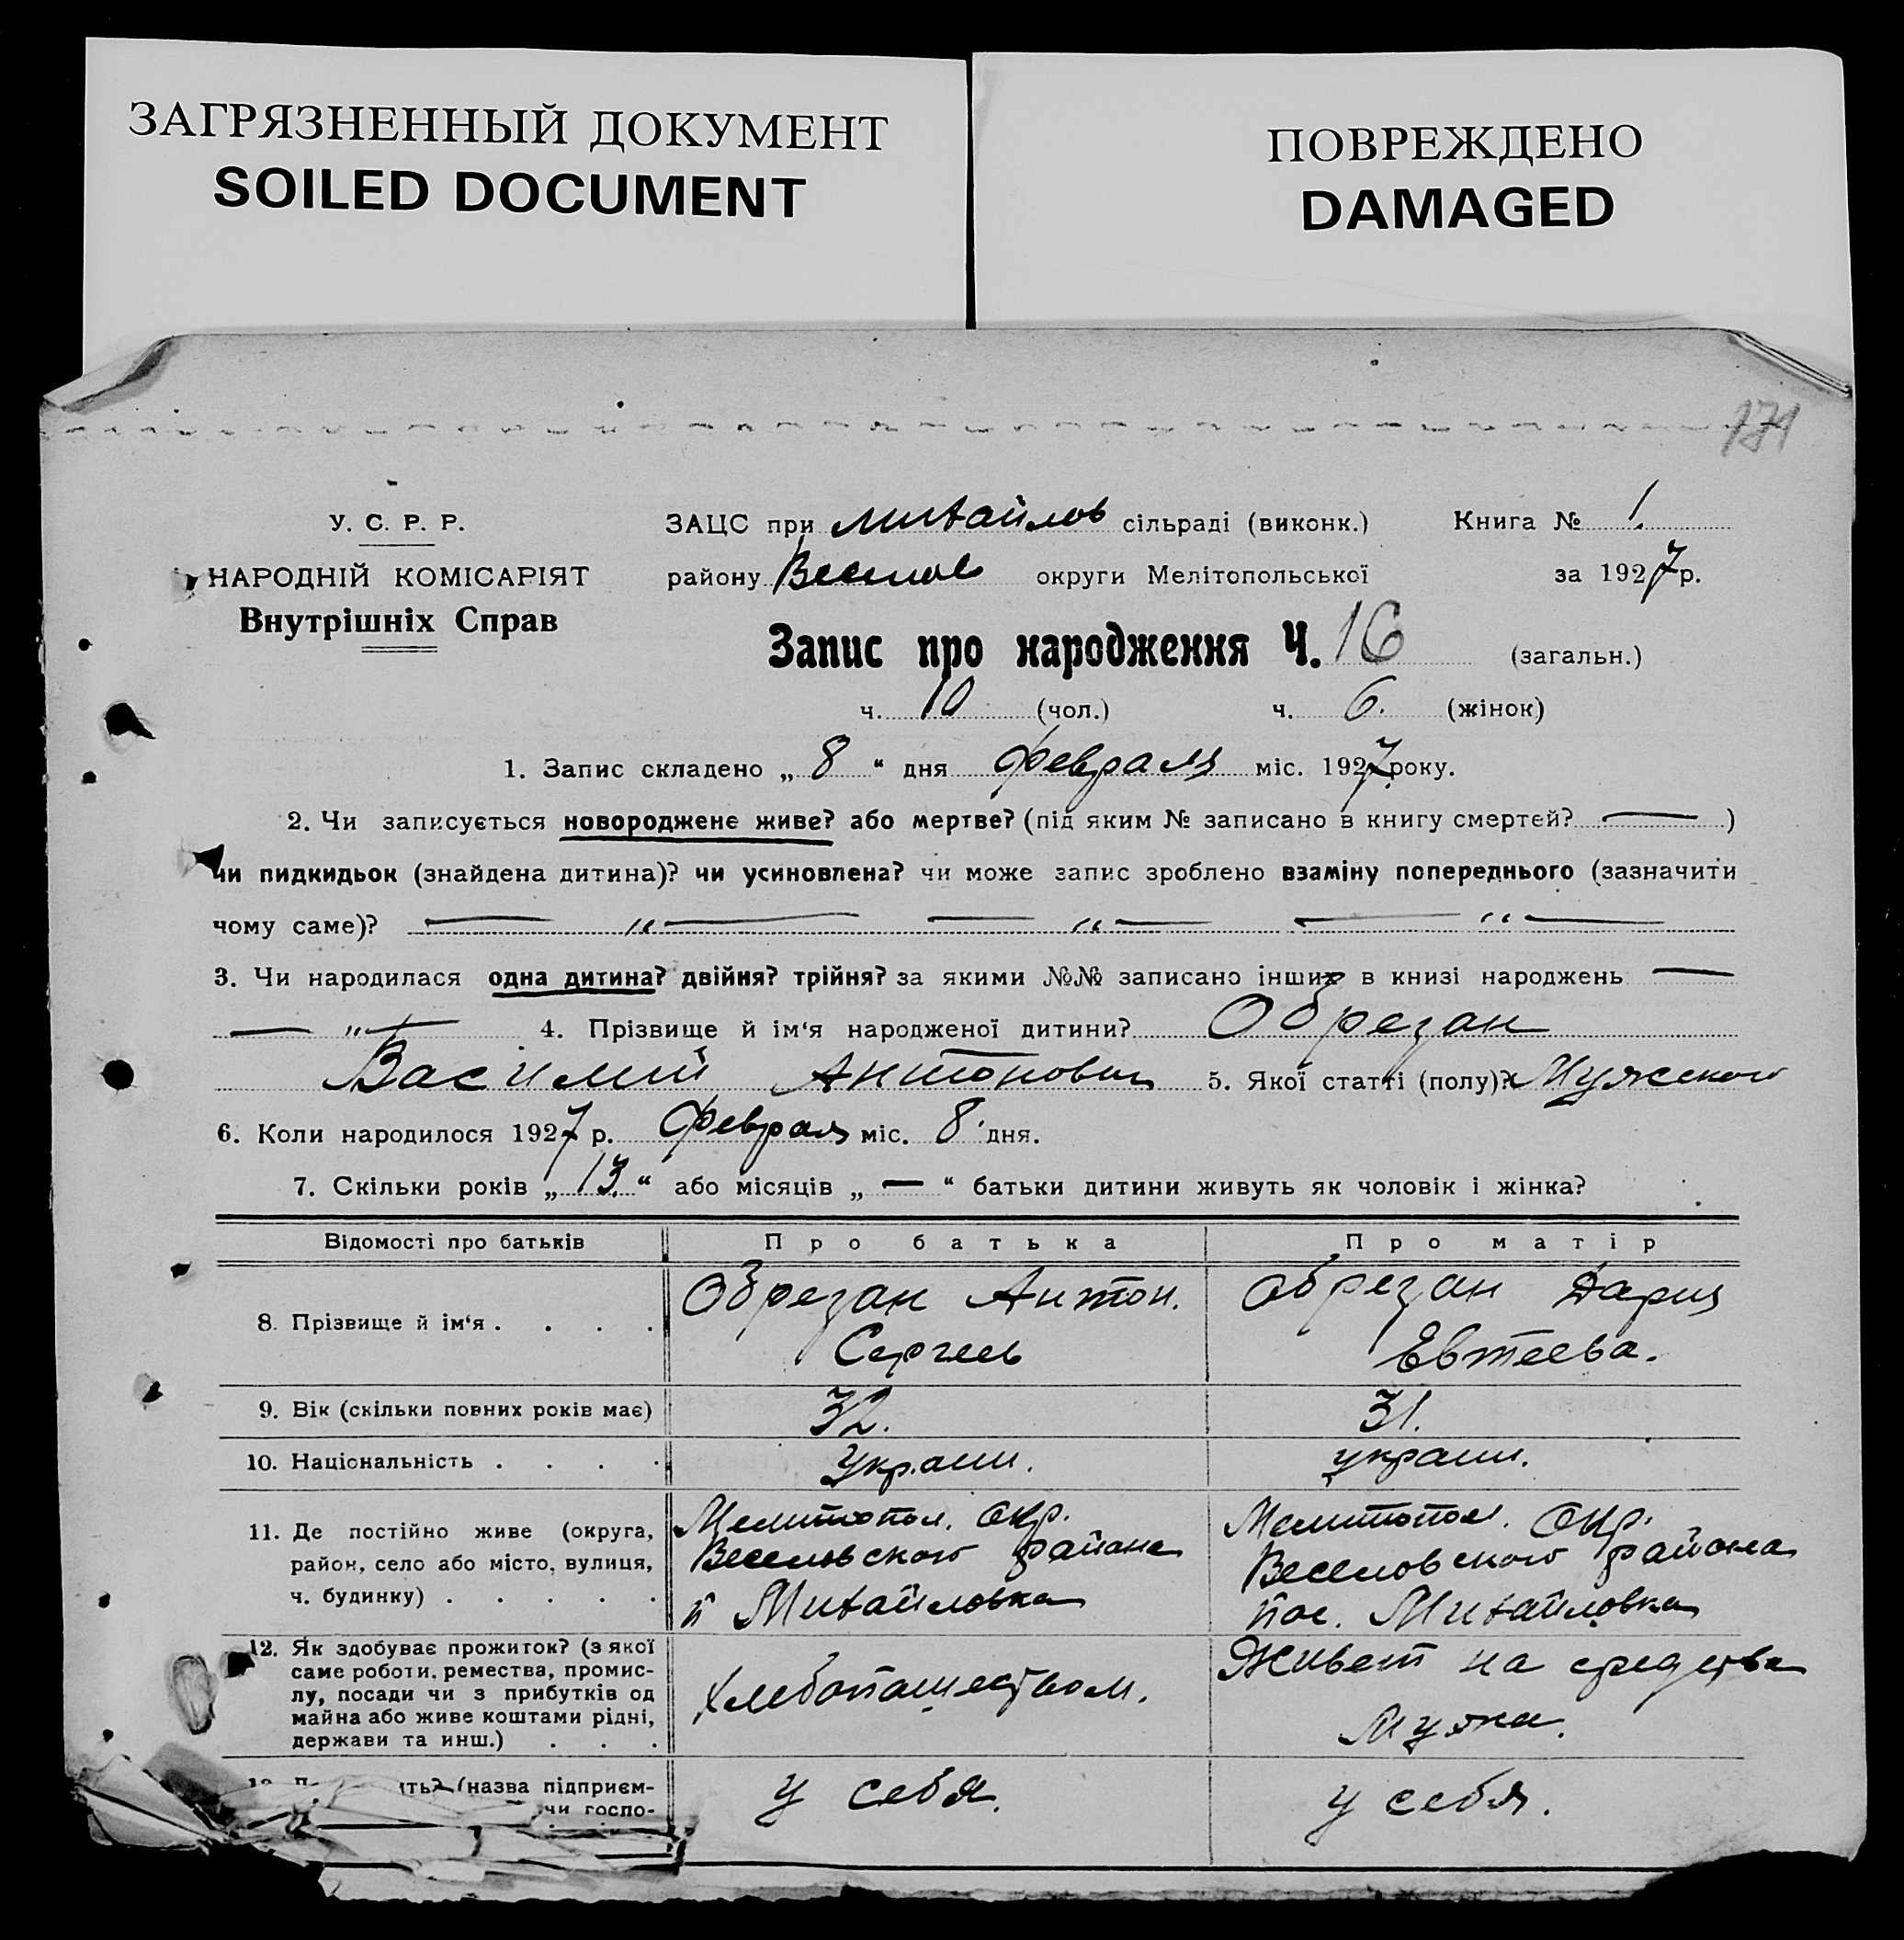 ЗАГРЯЗНЕННЫЙ ДОКУМЕНТ
SOILED DOCUMENT
ПОВРЕЖДЕНО
DAMAGED
171
У. С. Р. Р.
НАРОДНІЙ КОМІСАРІЯТ
Внутрішніх Справ
ЗАЦС при Михайлов сільраді (виконк.) Книга № 1.
району Веселов округи Мелітопольської за 1927 р.
Запис про народження Ч. 16 (загальн.)
ч. 10 (чол.) ч. 6. (жінок)
1. Запис складено „ 8 “ дня Февраля міс. 1927 року.
2. Чи записується новороджене живе? або мертве? (під яким № записано в книгу смертей? — )
чи пидкидьок (знайдена дитина)? чи усиновлена? чи може запис зроблено взаміну попереднього (зазначити
чому саме)? — „ — — „ — — „ —
3. Чи народилася одна дитина? двійня? трійня? за якими №№ записано інших в книзі народжень —
— „ — 4. Прізвище й ім‘я народженої дитини? Обрезан
Василий Антонович 5. Якої статті (полу)? Мужского
6. Коли народилося 1927 р. Февраля міс. 8 дня.
7. Скільки років „ 13 “ або місяців „ — “ батьки дитини живуть як чоловік і жінка?
Відомості про батьків Про батька Про матір
8. Прізвище й ім‘я . . . .
Обрезан Антон.
Сергеев
Обрезан Дария
Евтеева.
9. Вік (скільки повних років має) 32. 31.
10. Національність . . . . Украин. украин.
11. Де постійно живе (округа,
район, село або місто, вулиця,
ч. будинку) . . . . .
Мелитопол. окр.
Веселовского района
п Михайловка
Мелитопол. окр.
Веселовского района
пос. Михайловка
12. Як здобуває прожиток? (з якої
саме роботи, ремества, промис-
лу, посади чи з прибутків од
майна або живе коштами рідні,
держави та инш.) . . .
Хлебопашеством.
Живет на средства
Мужа.
(назва підприєм-
чи госпо-
у себя.
у себя.